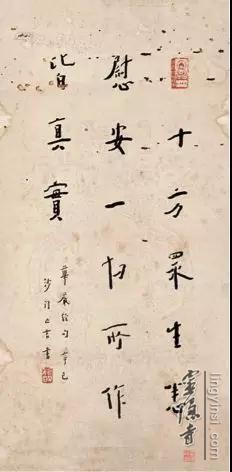 十方眾生
慰安一切所作
皆真實
華嚴經句辛巳
沙門亡言書
靈隱寺
lingyinsi.com